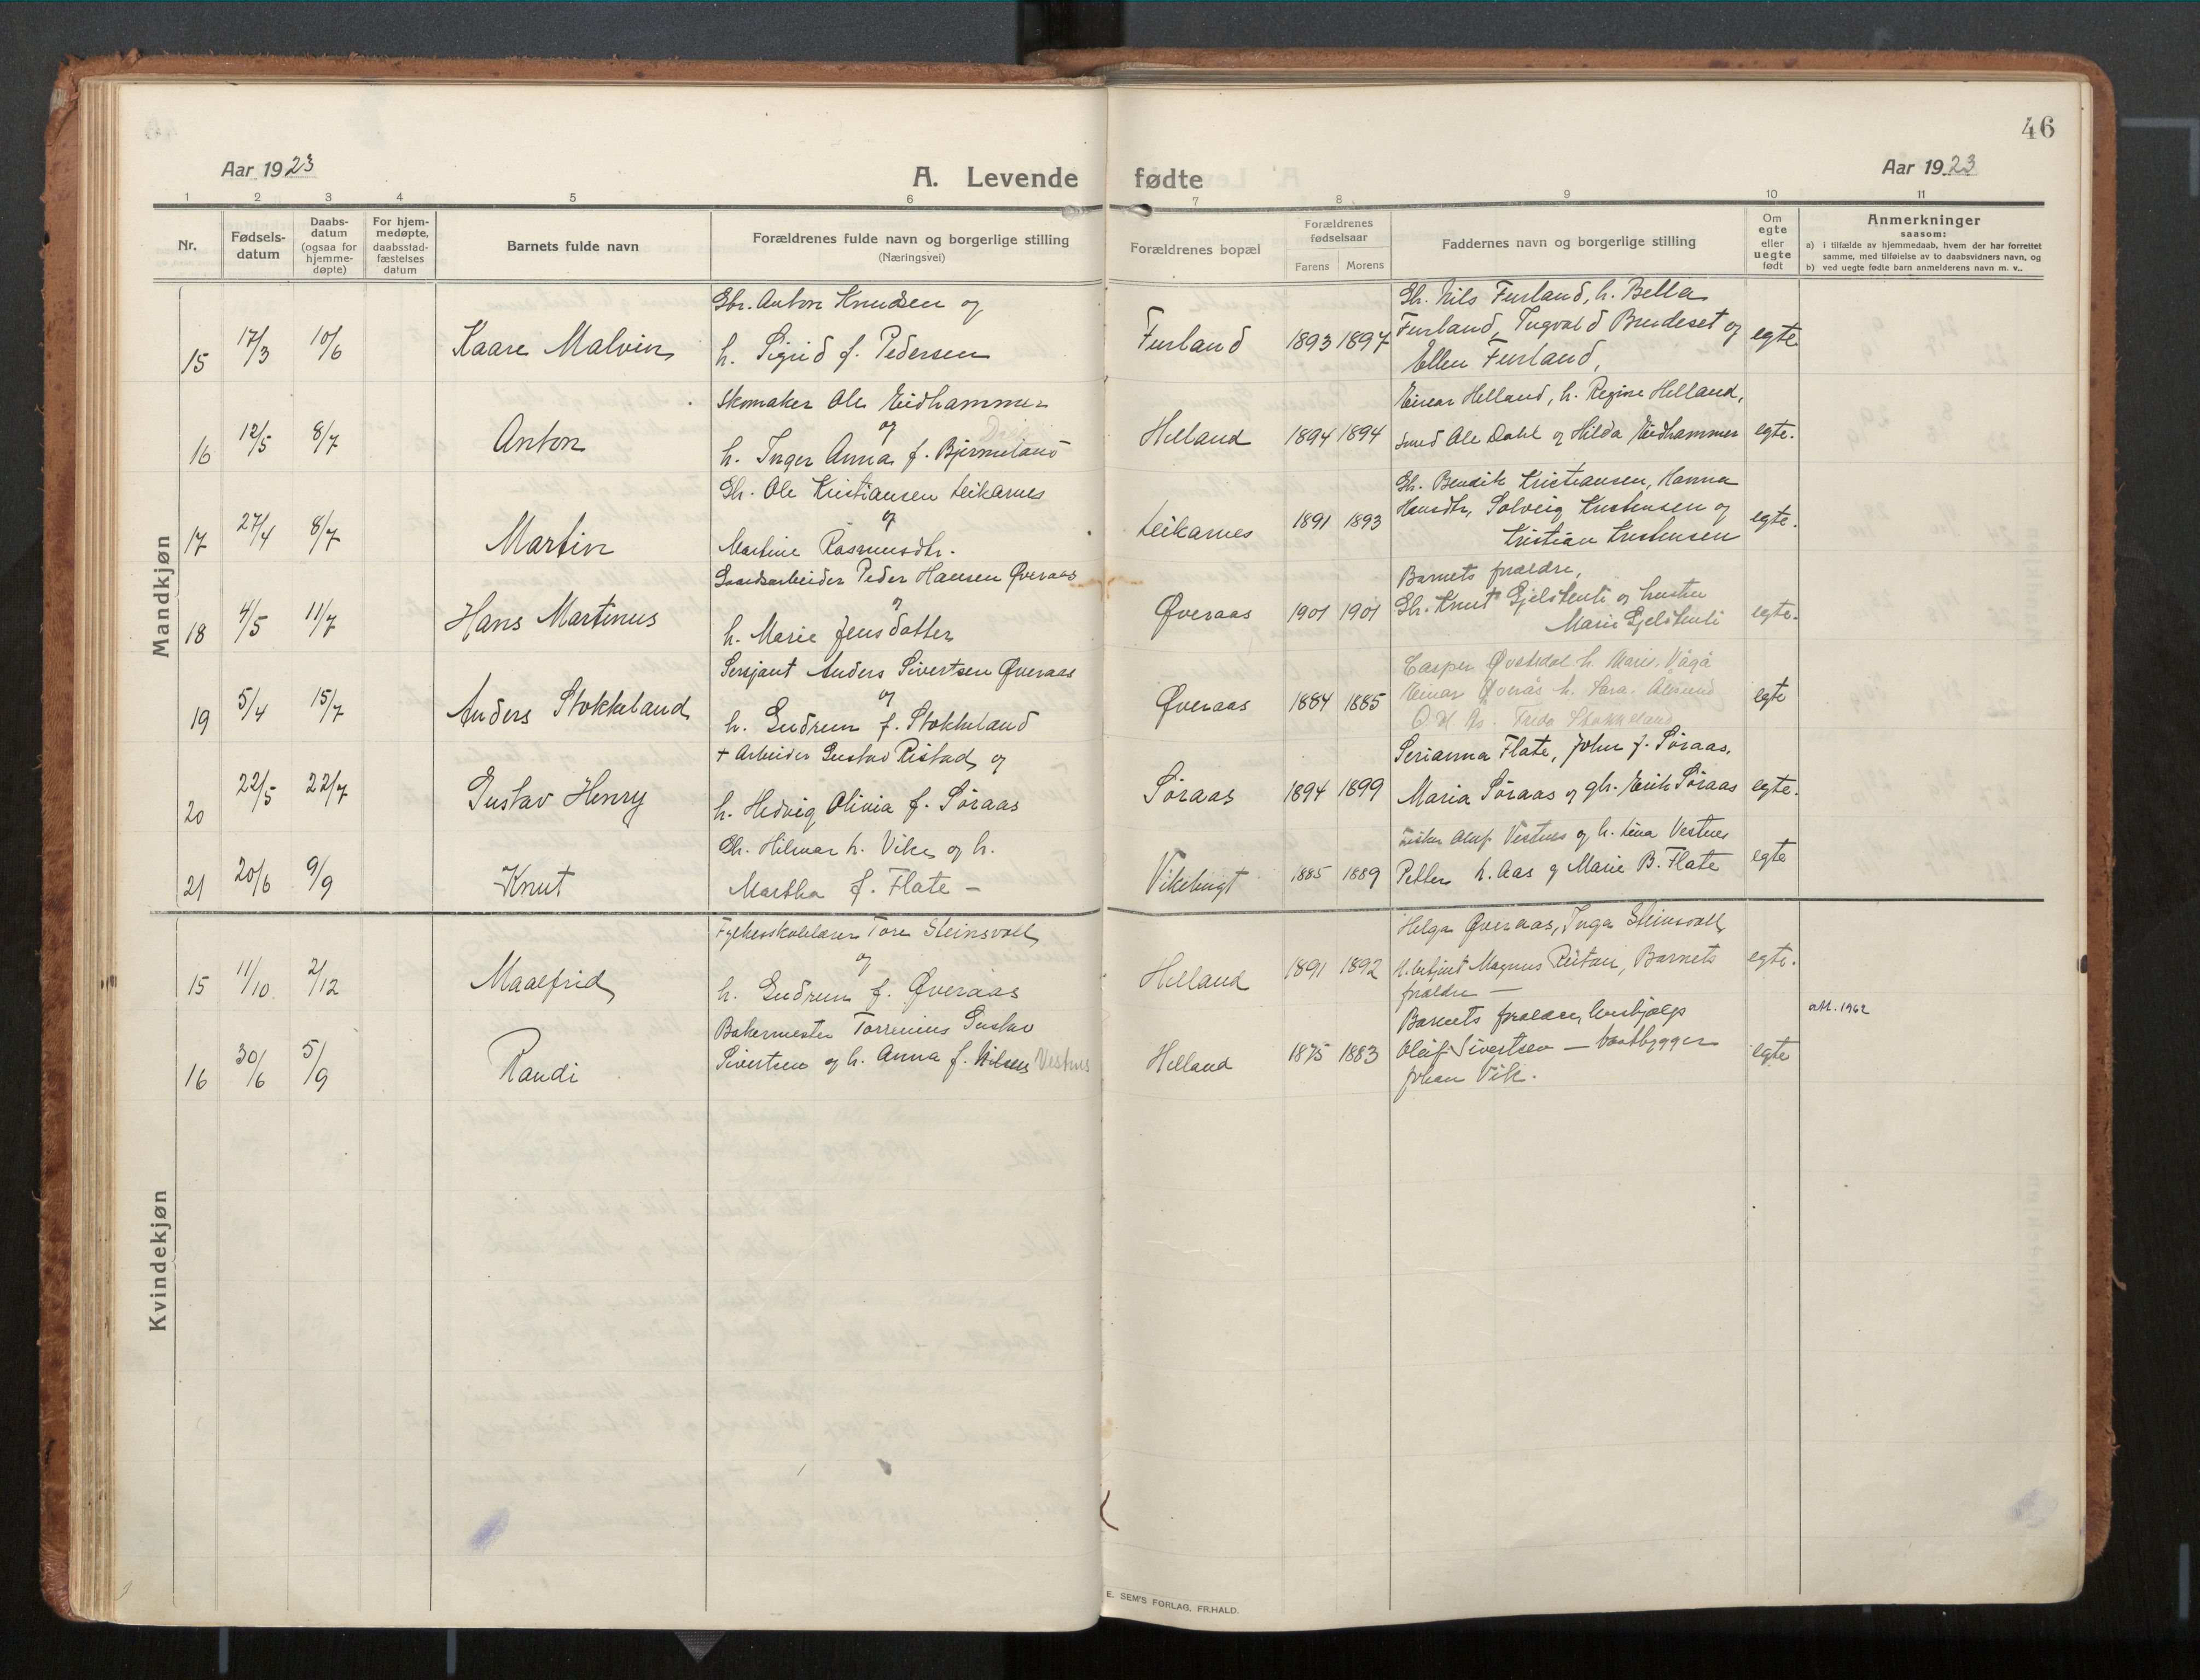 46
Aar 1923
A. Levende fødte
Aar 1923
1 2 3 4 5 6 7 8 9 10 11
Nr.
Fødsels-
datum
Daabs-
datum
(ogsaa for
hjemme-
døpte)
For hjem-
medøpte,
daabsstad-
fæstelses
datum
Barnets fulde navn
Forældrenes fulde navn og borgerlige stilling
(Næringsvei)
Forældrenes bopæl
Forældrenes
fødselsaar
Farens Morens
Faddernes navn og borgerlige stilling
Om
egte
eller
uegte
født
Anmerkninger
saasom:
a) i tilfælde av hjemmedaab, hvem der har forrettet
samme, med tilføielse av to daabsvidners navn, og
b) ved uegte fødte barn anmelderens navn m. v..
Mandkjøn
15 17/3 10/6 Kaare Malvin
Gbr. Anton Knudsen og
h. Sigrid f. Pedersen
Furland 1893 1897
Gb. Nils Furland, h. Bella
Furland, Ingvald Brudeset og
Ellen Furland,
egte
16 12/5 8/7 Anton
Skomaker Ole Eidhammer
og
h. Inger Anna f. Bjermeland
Helland 1894 1894
Einar Helland, h. Regine Helland,
Smed Ole Dahl og Hilda Eidhammer
egte.
17 27/4 8/7 Martin
Gb. Ole Kristiansen Leikarnes
og
Martine Rasmusdtr.
Leikarnes 1891 1893
Gb. Bendik Kristiansen, Hanna
Hansdtr, Solveig Kristensen og
Kristian Kristensen
egte.
18 4/5 11/7 Hans Martinus
Gaardsarbeider Peder Hansen Øveraas
og
h. Marie Jensdatter
Øveraas 1901 1901
Barnets forældre,
Gb. Knut Gjelstenli og hustru
Marie Gjelstenli
egte.
19 5/4 15/7 Anders Stokkeland
Sersjant Anders Sivertsen Øveraas
og
h. Gudrun f. Stokkeland
Øveraas 1884 1885
Casper Øvstedal h. Marie, Vågå
Einar Øverås h. Sara. Ålesund
Stokkeland
egte
20 22/5 22/7 Gustav Henry
+ Arbeider Gustav Ristad og
h. Hedvig Olivia f. Søraas
Søraas 1894 1899
Serianna Flate, John J. Søraas,
Maria Søraas og gb. Erik Søraas
egte.
21 20/6 9/9 Knut
Gb. Hilmar h. Vike og h.
Martha f. Flate -
Vikebugt 1885 1889
Fisker Oluf Vestnes og h. Lina Vestnes
Petter h. Aas og Marie B. Flate
egte
Kvindekjøn
15 11/10 2/12 Maalfrid
Fylkesskolelærer Tore Steinsvoll
og
h. Gudrun f. Øveraas
Helland 1891 1892
Helga Øveraas, Inga Steinsvoll,
Magnus Reitan, Barnets
forældre -
egte.
16 30/6 5/9 Randi
Bakermester Torrenius Gustav
Sivertsen og h. Anna f. Nilsen Vestnes
Helland 1875 1883
Barnets forældre, husbjælp
Oluf Sivertsen - baatbygger
Johan Vik.
egte
att. 1962
E. SEM'S FORLAG, FR.HALD.